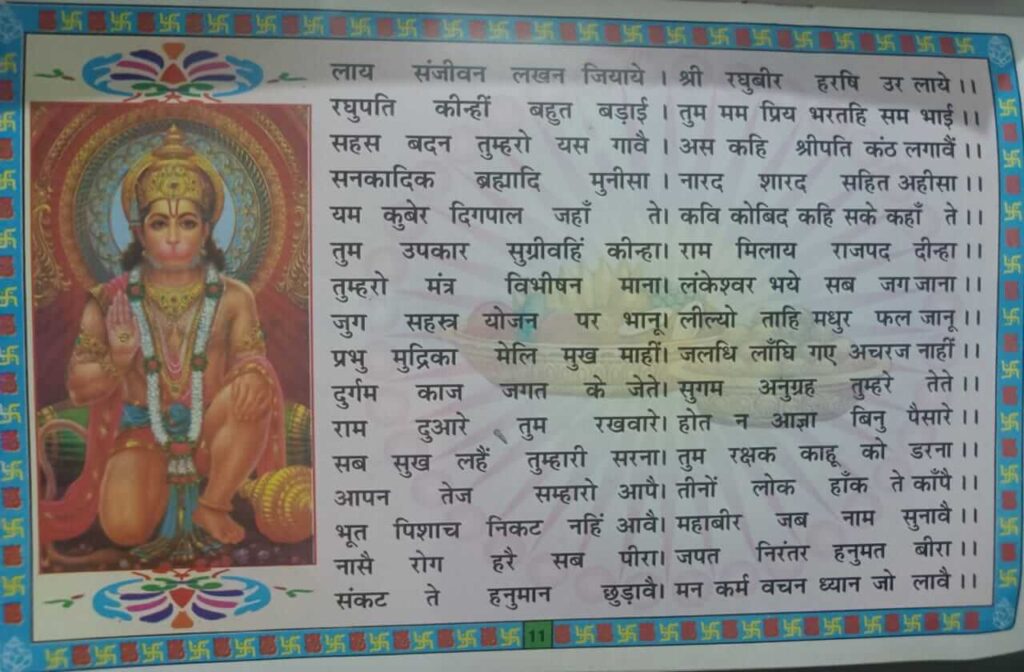 लाय संजीवन लखन जियाये । श्री रघुबीर हरषि उर लाये ।।
रघुपति कीन्हीं बहुत बड़ाई । तुम मम प्रिय भरतहि सम भाई ।।
सहस बदन तुम्हरो यस गावै । अस कहि श्रीपति कंठ लगावैं ।।
सनकादिक ब्रह्मादि मुनीसा । नारद शारद सहित अहीसा ।।
यम कुबेर दिगपाल जहाँ ते। कवि कोबिद कहि सके कहाँ ते ।।
तुम उपकार सुग्रीवहिं कीन्हा। राम मिलाय राजपद दीन्हा ।।
तुम्हरो मंत्र विभीषन माना। लंकेश्वर भये सब जग जाना ।।
जुग सहस्त्र योजन पर भानू। लील्यो ताहि मधुर फल जानू ।।
प्रभु मुद्रिका मेलि मुख माहीं। जलधि लाँघि गए अचरज नाहीं ।।
दुर्गम काज जगत के जेते। सुगम अनुग्रह तुम्हरे तेते ।।
राम दुआरे तुम रखवारे। होत न आज्ञा बिनु पैसारे ।।
सब सुख लहैं तुम्हारी सरना। तुम रक्षक काहू को डरना ।।
आपन तेज सम्हारो आपै। तीनों लोक हाँक ते काँपै ।।
भूत पिशाच निकट नहिं आवै। महाबीर जब नाम सुनावै ।।
नासै रोग हरै सब पीरा। जपत निरंतर हनुमत बीरा ।।
संकट ते हनुमान छुड़ावै। मन कर्म वचन ध्यान जो लावै ।।
11